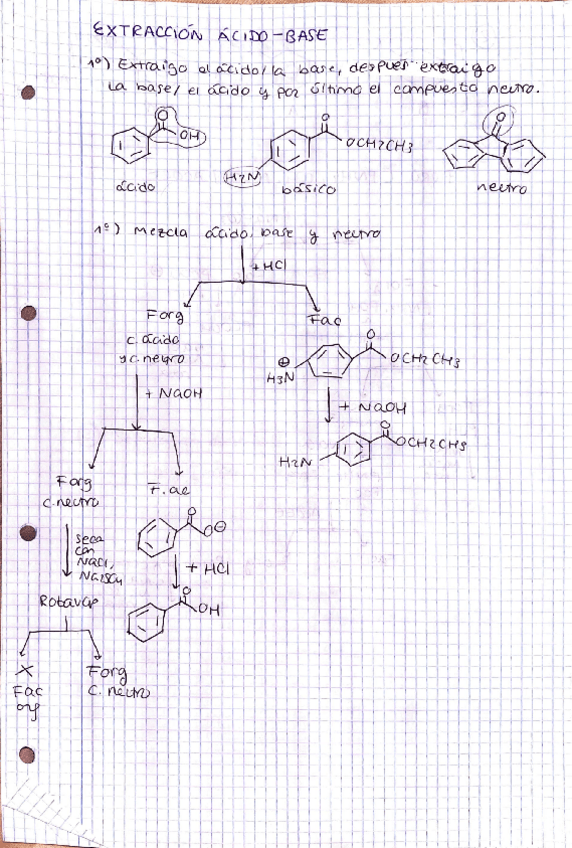 EXTRACCIÓN ÁCIDO-BASE
1º) Extraigo el ácido/la base, después extraigo
la base/el ácido y por último el compuesto neutro.
O
OH
ácido
O
OCH2CH3
H2N
básico
O
neutro
1º) Mezcla ácido base y neutro
+HCl
Forg
c. ácido
y c. neutro
Fac
O
OCH2CH3
⊕
H3N
+ NaOH
+ NaOH
O
OCH2CH3
H2N
Forg
C. neutro
F. ac
O
O⊖
seca
con
NaCl,
+ HCl
Rotavap
O
OH
X
Fac
org
Forg
C. neutro